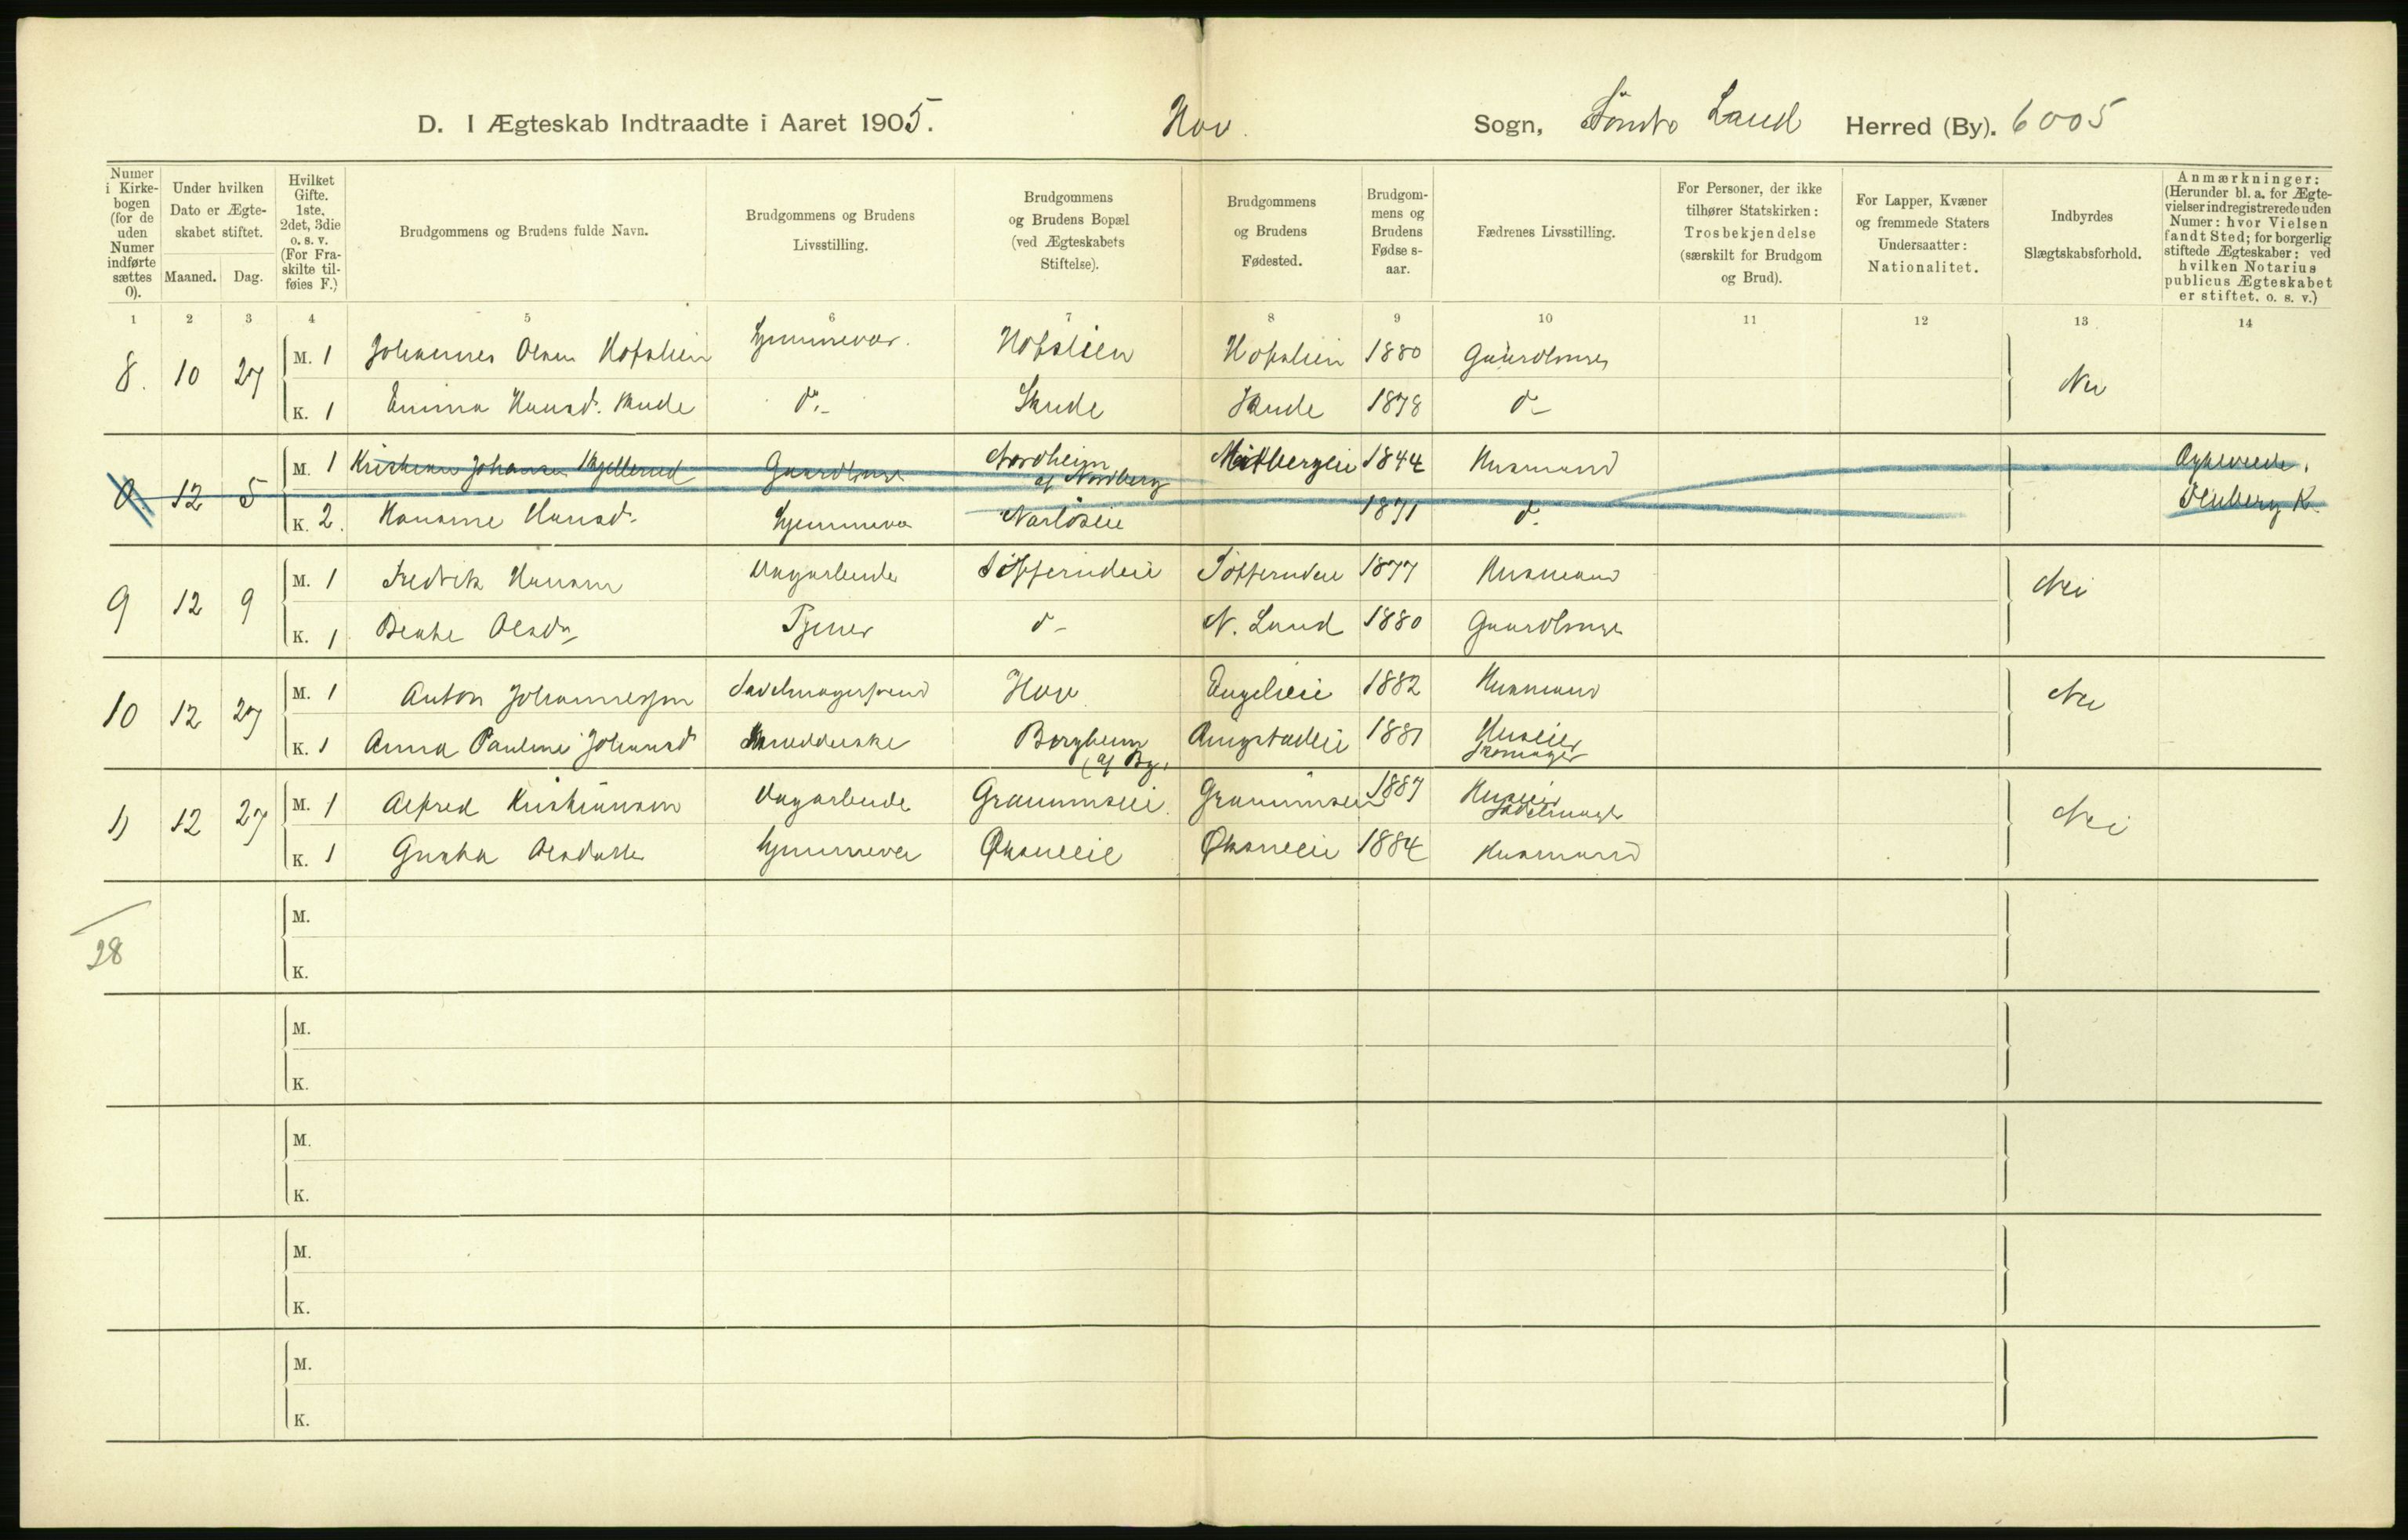 D. I Ægteskab Indtraadte i Aaret 1905. Hov. Sogn, Söndre Land Herred (By). 6005
Numer i Kirkebogen (for de uden Numer indførte sættes 0).
Under hvilken Dato er Ægteskabet stiftet.
Maaned. Dag.
Hvilket Gifte. 1ste, 2det, 3die o. s. v. (For Fraskilte tilføies F.)
Brudgommens og Brudens fulde Navn.
Brudgommens og Brudens Livsstilling.
Brudgommens og Brudens Bopæl (ved Ægteskabets Stiftelse).
Brudgommens og Brudens Fødested.
Brudgommens og Brudens Fødse s-aar.
Fædrenes Livsstilling.
For Personer, der ikke tilhører Statskirken: Trosbekjendelse (særskilt for Brudgom og Brud).
For Lapper, Kvæner og fremmede Staters Undersaatter: Nationalitet.
Indbyrdes Slægtskabsforhold.
Anmærkninger: (Herunder bl. a. for Ægtevielser indregistrerede uden Numer: hvor Vielsen fandt Sted; for borgerlig stiftede Ægteskaber: ved hvilken Notarius publicus Ægteskabet er stiftet. o. s. v.)
1 2 3 4 5 6 7 8 9 10 11 12 13 14
8. 10 27 M. 1 Johannes Olsen Hofslien Hjemmevær. Hofslien Hofslien 1880 Gaardbruger Nei
K. 1 Emma Hansd. Skude do.- Skude Skude 1878 do-
0 12 5 M. 1 Kristian Johansen Gaardbruger Nordheim af Nordberg 1844 Husmand
K. 2. Hansd. Hjemmevær 1871 do.
9 12 9 M. 1 Fredrik Hansen Dagarbeider Husmand 1877 Nei
K. 1 Beate Olsdr Tjener do- N. Land 1880 Gaardbruger
10 12 27 M. 1 Anton Johannessen Sadelmagersvend Hov 1882 Husmand Nei
K. 1 Anna Pauline Johansd Skrædderske Borgheim (af By) 1881 Huseier Skomager
11 12 27 M. 1 Alfred Kristiansen Dagarbeide Graumseie. Graumseie 1887 Huseier Sadelmager Nei
K. 1 Gusta Olsdatter Hjemmevær 1884 Husmand
M.
28
K.
M.
K.
M.
K.
M.
K.
M.
K.